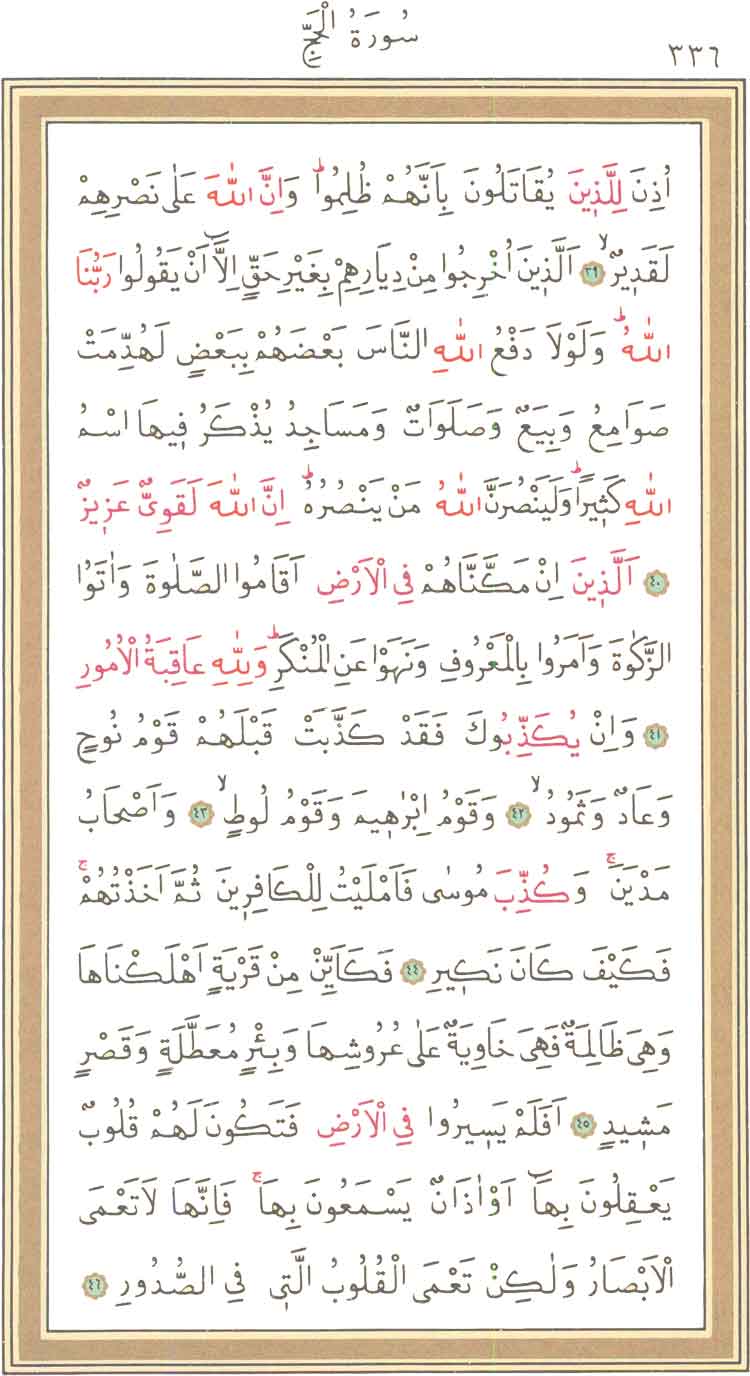 سُورَةُ الْحَجِّ ٣٣٦
اُذِنَ لِلَّذ۪ينَ يُقَاتَلُونَ بِاَنَّهُمْ ظُلِمُواۜ وَاِنَّ اللّٰهَ عَلٰى نَصْرِهِمْ
لَقَد۪يرٌۙ ﴿٣٩﴾ اَلَّذ۪ينَ اُخْرِجُوا مِنْ دِيَارِهِمْ بِغَيْرِ حَقٍّ اِلَّٓا اَنْ يَقُولُوا رَبُّنَا
اللّٰهُۜ وَلَوْلَا دَفْعُ اللّٰهِ النَّاسَ بَعْضَهُمْ بِبَعْضٍ لَهُدِّمَتْ
صَوَامِعُ وَبِيَعٌ وَصَلَوَاتٌ وَمَسَاجِدُ يُذْكَرُ ف۪يهَا اسْمُ
اللّٰهِ كَث۪يرًاۜ وَلَيَنْصُرَنَّ اللّٰهُ مَنْ يَنْصُرُهُۜ اِنَّ اللّٰهَ لَقَوِيٌّ عَز۪يزٌ
﴿٤٠﴾ اَلَّذ۪ينَ اِنْ مَكَّنَّاهُمْ فِي الْاَرْضِ اَقَامُوا الصَّلٰوةَ وَاٰتَوُا
الزَّكٰوةَ وَاَمَرُوا بِالْمَعْرُوفِ وَنَهَوْا عَنِ الْمُنْكَرِۜ وَلِلّٰهِ عَاقِبَةُ الْاُمُورِ
﴿٤١﴾ وَاِنْ يُكَذِّبُوكَ فَقَدْ كَذَّبَتْ قَبْلَهُمْ قَوْمُ نُوحٍ
وَعَادٌ وَثَمُودُۙ ﴿٤٢﴾ وَقَوْمُ اِبْرٰه۪يمَ وَقَوْمُ لُوطٍۙ ﴿٤٣﴾ وَاَصْحَابُ
مَدْيَنَۚ وَكُذِّبَ مُوسٰى فَاَمْلَيْتُ لِلْكَافِر۪ينَ ثُمَّ اَخَذْتُهُمْۚ
فَكَيْفَ كَانَ نَك۪يرِ ﴿٤٤﴾ فَكَاَيِّنْ مِنْ قَرْيَةٍ اَهْلَكْنَاهَا
وَهِيَ ظَالِمَةٌ فَهِيَ خَاوِيَةٌ عَلٰى عُرُوشِهَا وَبِئْرٍ مُعَطَّلَةٍ وَقَصْرٍ
مَش۪يدٍ ﴿٤٥﴾ اَفَلَمْ يَس۪يرُوا فِي الْاَرْضِ فَتَكُونَ لَهُمْ قُلُوبٌ
يَعْقِلُونَ بِهَٓا اَوْ اٰذَانٌ يَسْمَعُونَ بِهَاۚ فَاِنَّهَا لَا تَعْمَى
الْاَبْصَارُ وَلٰكِنْ تَعْمَى الْقُلُوبُ الَّت۪ي فِي الصُّدُورِ ﴿٤٦﴾